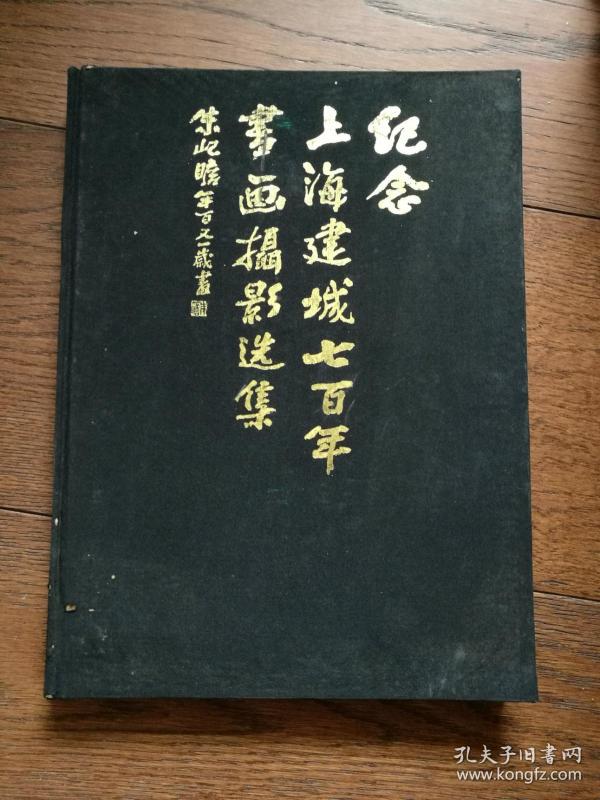 纪念
上海建城七百年
書画攝影选集
朱屺瞻年百又一歲書
孔夫子旧書网
www.kongfz.com